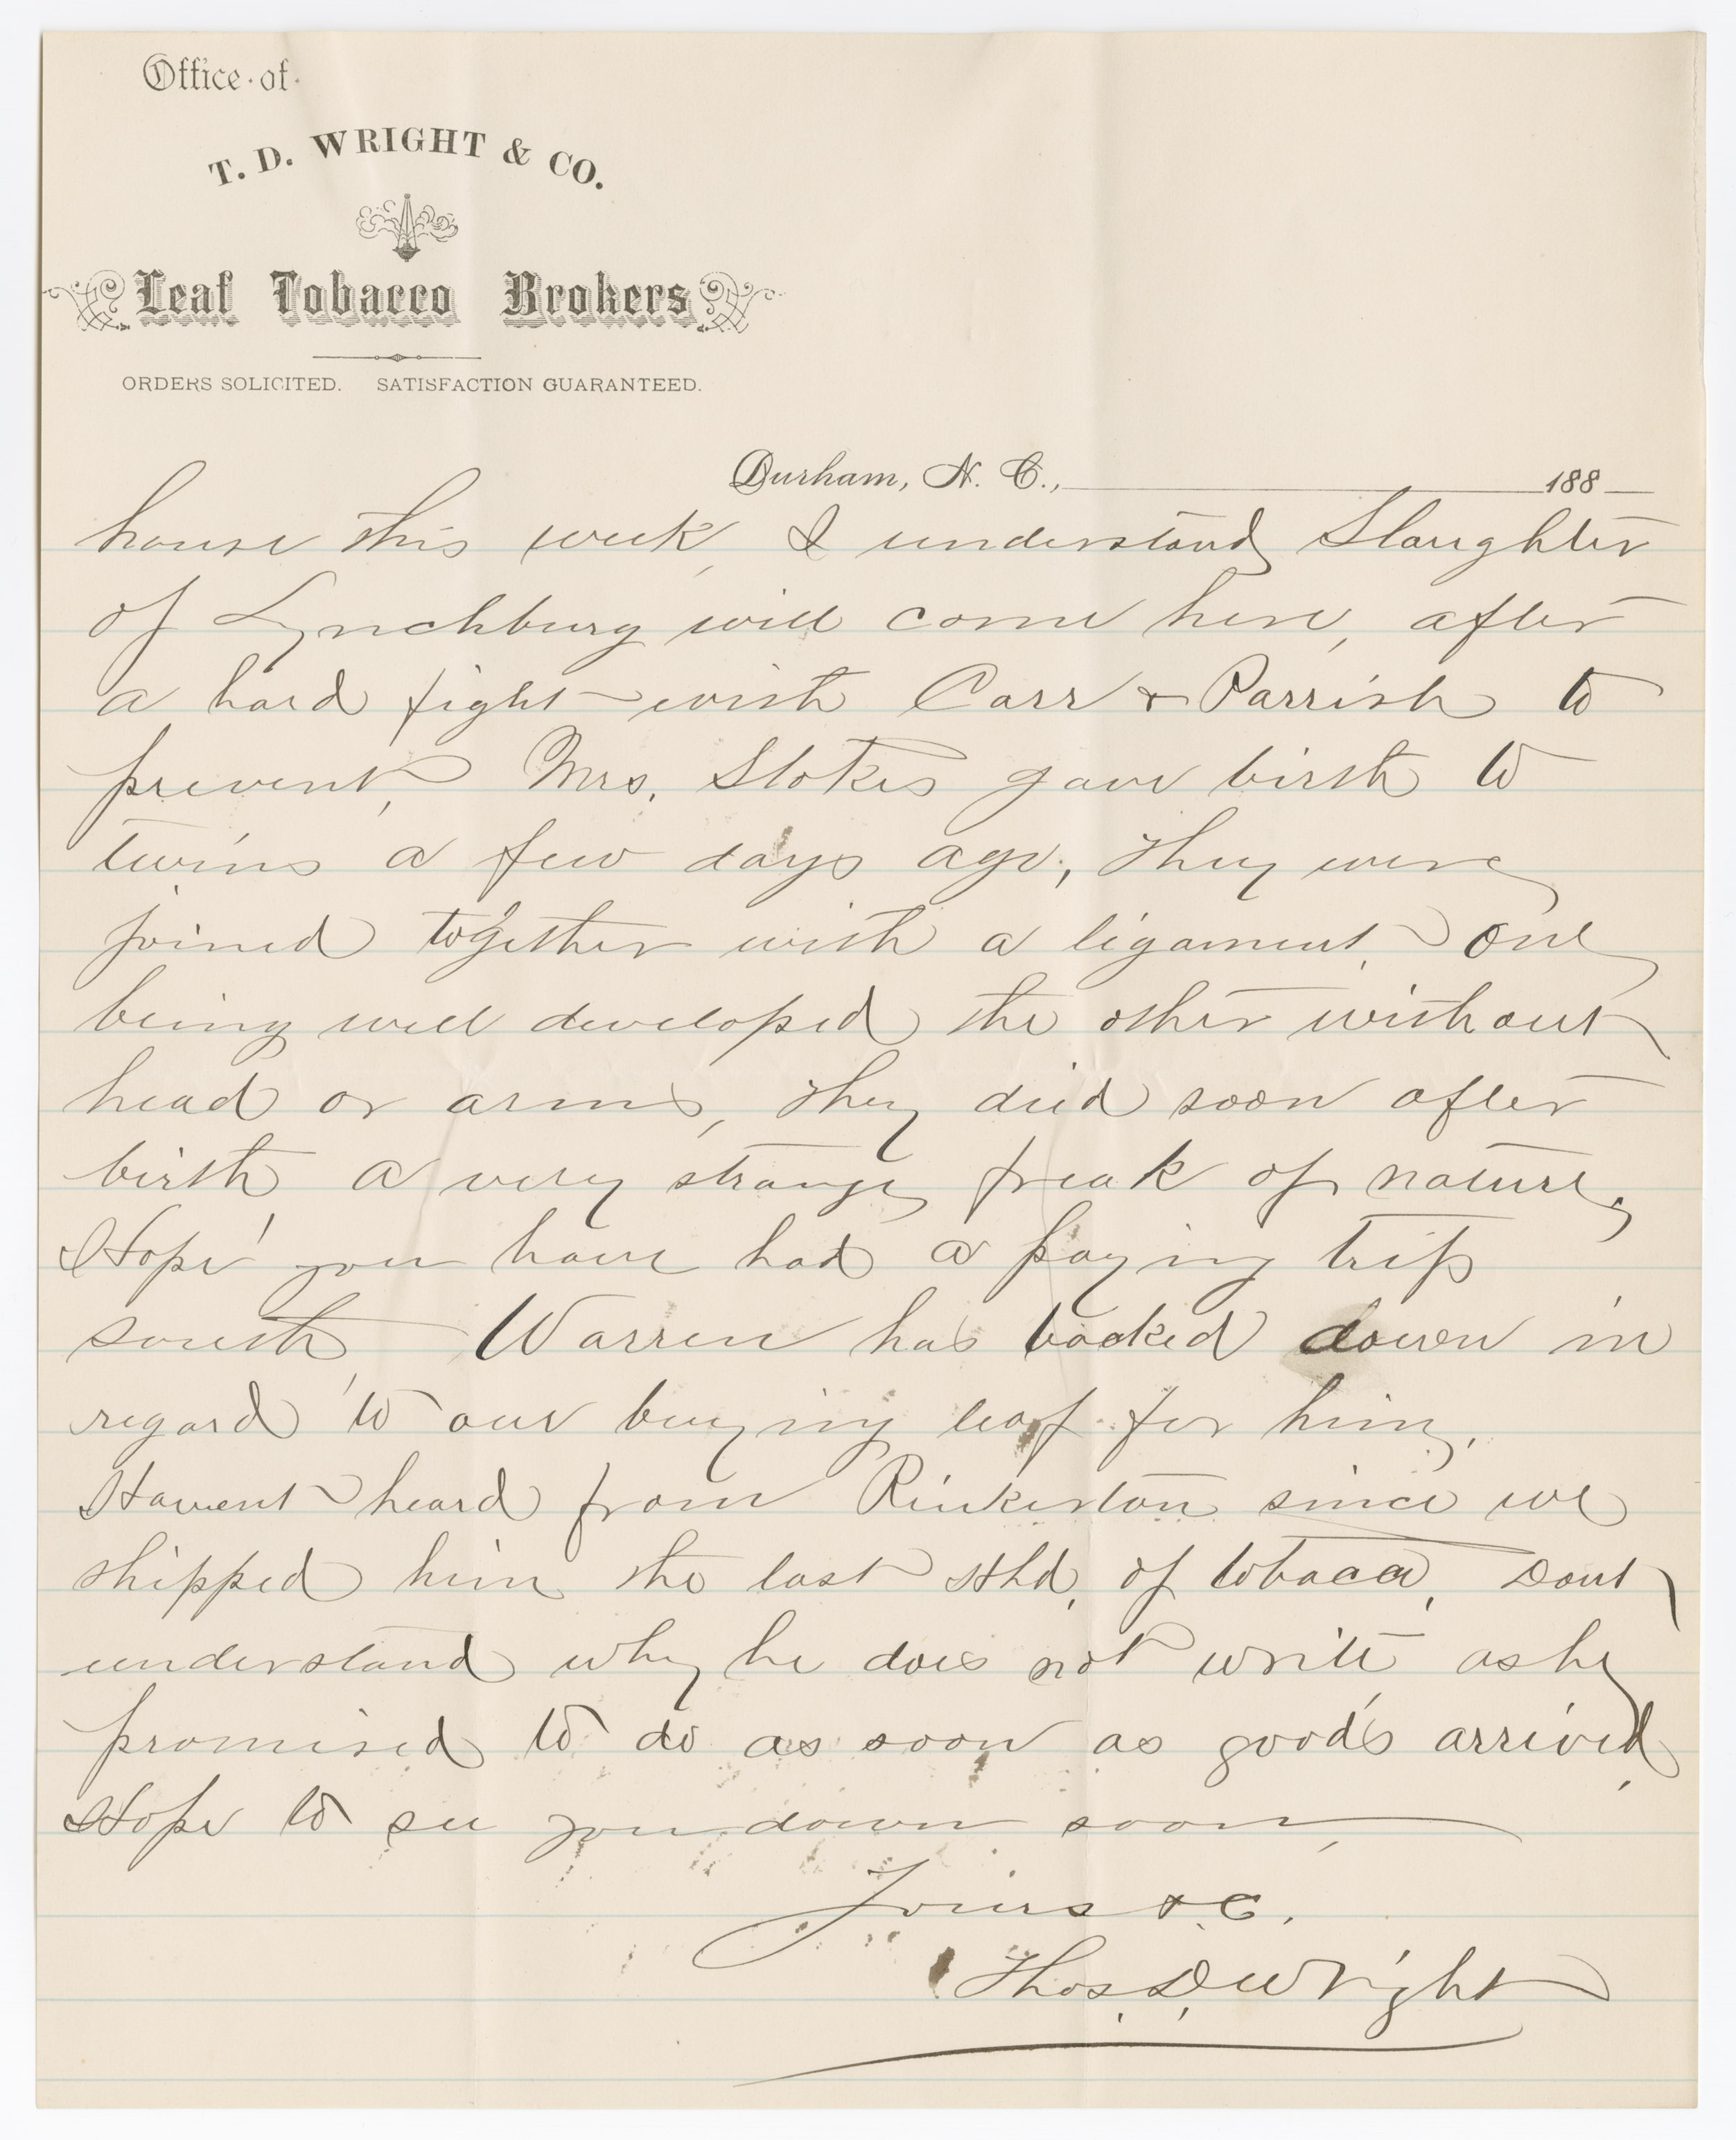 Office of
T. D. WRIGHT & CO.
Leaf Tobacco Brokers
ORDERS SOLICITED. SATISFACTION GUARANTEED.
Durham, N. C., 188
house this week, I understand Slaughter
of Lynchburg will come here, after
a hard fight with Carr & Parrish to
prevent, Mrs. Stokes gave birth to
twins a few days ago, they were
joined together with a ligament, one
being well developed the other without
head or arms, they died soon after
birth, a very strange freak of nature,
Hope you have had a paying trip
south, Warren has backed down in
regard to our buying leaf for him,
Havent heard from Rinkerton since we
shipped him the last Hhd, of tobacco, Dont
understand why he does not write as he
promised to do as soon as goods arrived,
Hope to see you down soon,
Yours &C.
Thos. D. Wright